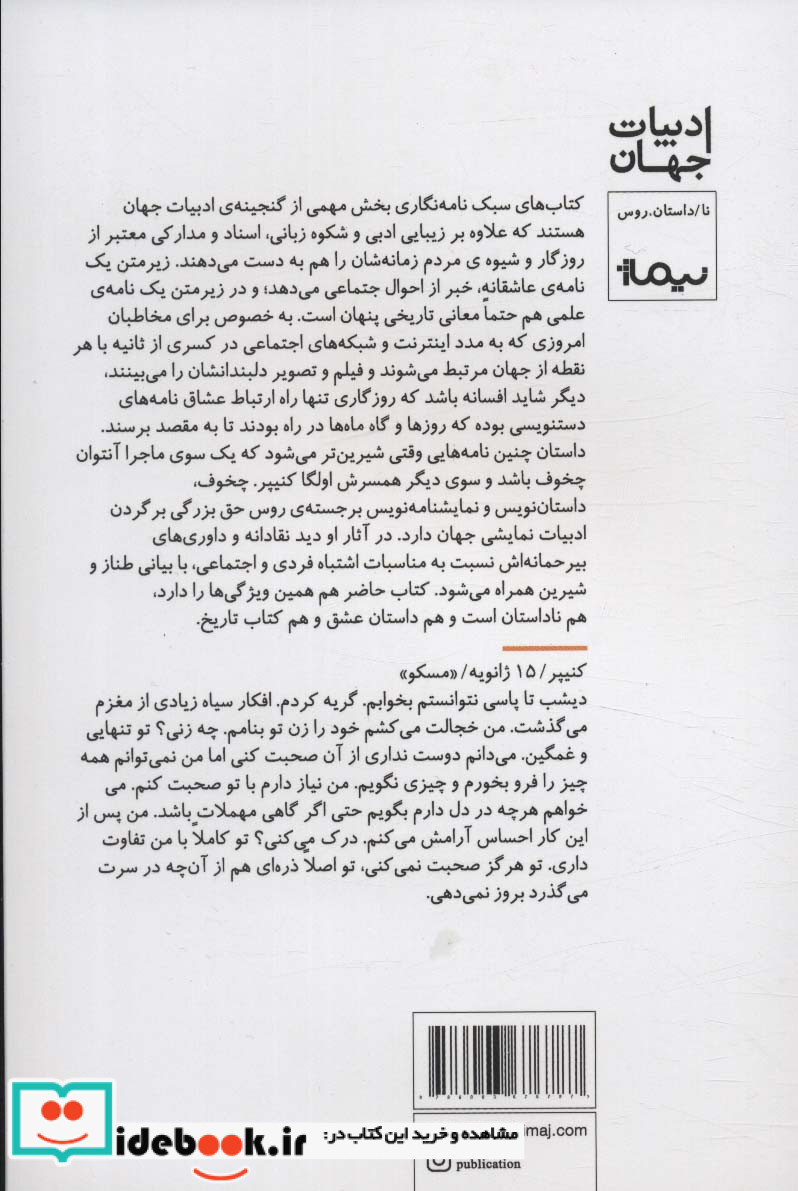 ادبیات
جهان
نا/داستان.روس
نیماژ
کتاب‌های سبک نامه‌نگاری بخش مهمی از گنجینه‌ی ادبیات جهان
هستند که علاوه بر زیبایی ادبی و شکوه زبانی، اسناد و مدارکی معتبر از
روزگار و شیوه ی مردم زمانه‌شان را هم به دست می‌دهند. زیرمتن یک
نامه‌ی عاشقانه، خبر از احوال جتماعی می‌دهد؛ و در زیرمتن یک نامه‌ی
علمی هم حتماً معانی تاریخی پنهان است. به خصوص برای مخاطبان
امروزی که به مدد اینترنت و شبکه‌های اجتماعی در کسری از ثانیه با هر
نقطه از جهان مرتبط می‌شوند و فیلم و تصویر دلبندانشان را می‌بینند،
دیگر شاید افسانه باشد که روزگاری تنها راه ارتباط عشاق نامه‌های
دستنویسی بوده که روزها و گاه ماه‌ها در راه بودند تا به مقصد برسند.
داستان چنین نامه‌هایی وقتی شیرین‌تر می‌شود که یک سوی ماجرا آنتوان
چخوف باشد و سوی دیگر همسرش اولگا کنیپر. چخوف،
داستان‌نویس و نمایشنامه‌نویس برجسته‌ی روس حق بزرگی بر گردن
ادبیات نمایشی جهان دارد. در آثار او دید نقادانه و داوری‌های
بیرحمانه‌اش نسبت به مناسبات اشتباه فردی و اجتماعی، با بیانی طناز و
شیرین همراه می‌شود. کتاب حاضر هم همین ویژگی‌ها را دارد،
هم ناداستان است و هم داستان عشق و هم کتاب تاریخ.
کنیپر/ ۱۵ ژانویه/ «مسکو»
دیشب تا پاسی نتوانستم بخوابم. گریه کردم. افکار سیاه زیادی از مغزم
می‌گذشت. من خجالت می‌کشم خود را زن تو بنامم. چه زنی؟ تو تنهایی
و غمگین. می‌دانم دوست نداری از آن صحبت کنی اما من نمی‌توانم همه
چیز را فرو بخورم و چیزی نگویم. من نیاز دارم با تو صحبت کنم. می
خواهم هرچه در دل دارم بگویم حتی اگر گاهی مهملات باشد. من پس از
این کار احساس آرامش می‌کنم. درک می‌کنی؟ تو کاملاً با من تفاوت
داری. تو هرگز صحبت نمی‌کنی، تو اصلاً ذره‌ای هم از آن‌چه در سرت
می‌گذرد بروز نمی‌دهی.
مشاهده و خرید این کتاب در:
idebook.ir
maj.com
publication